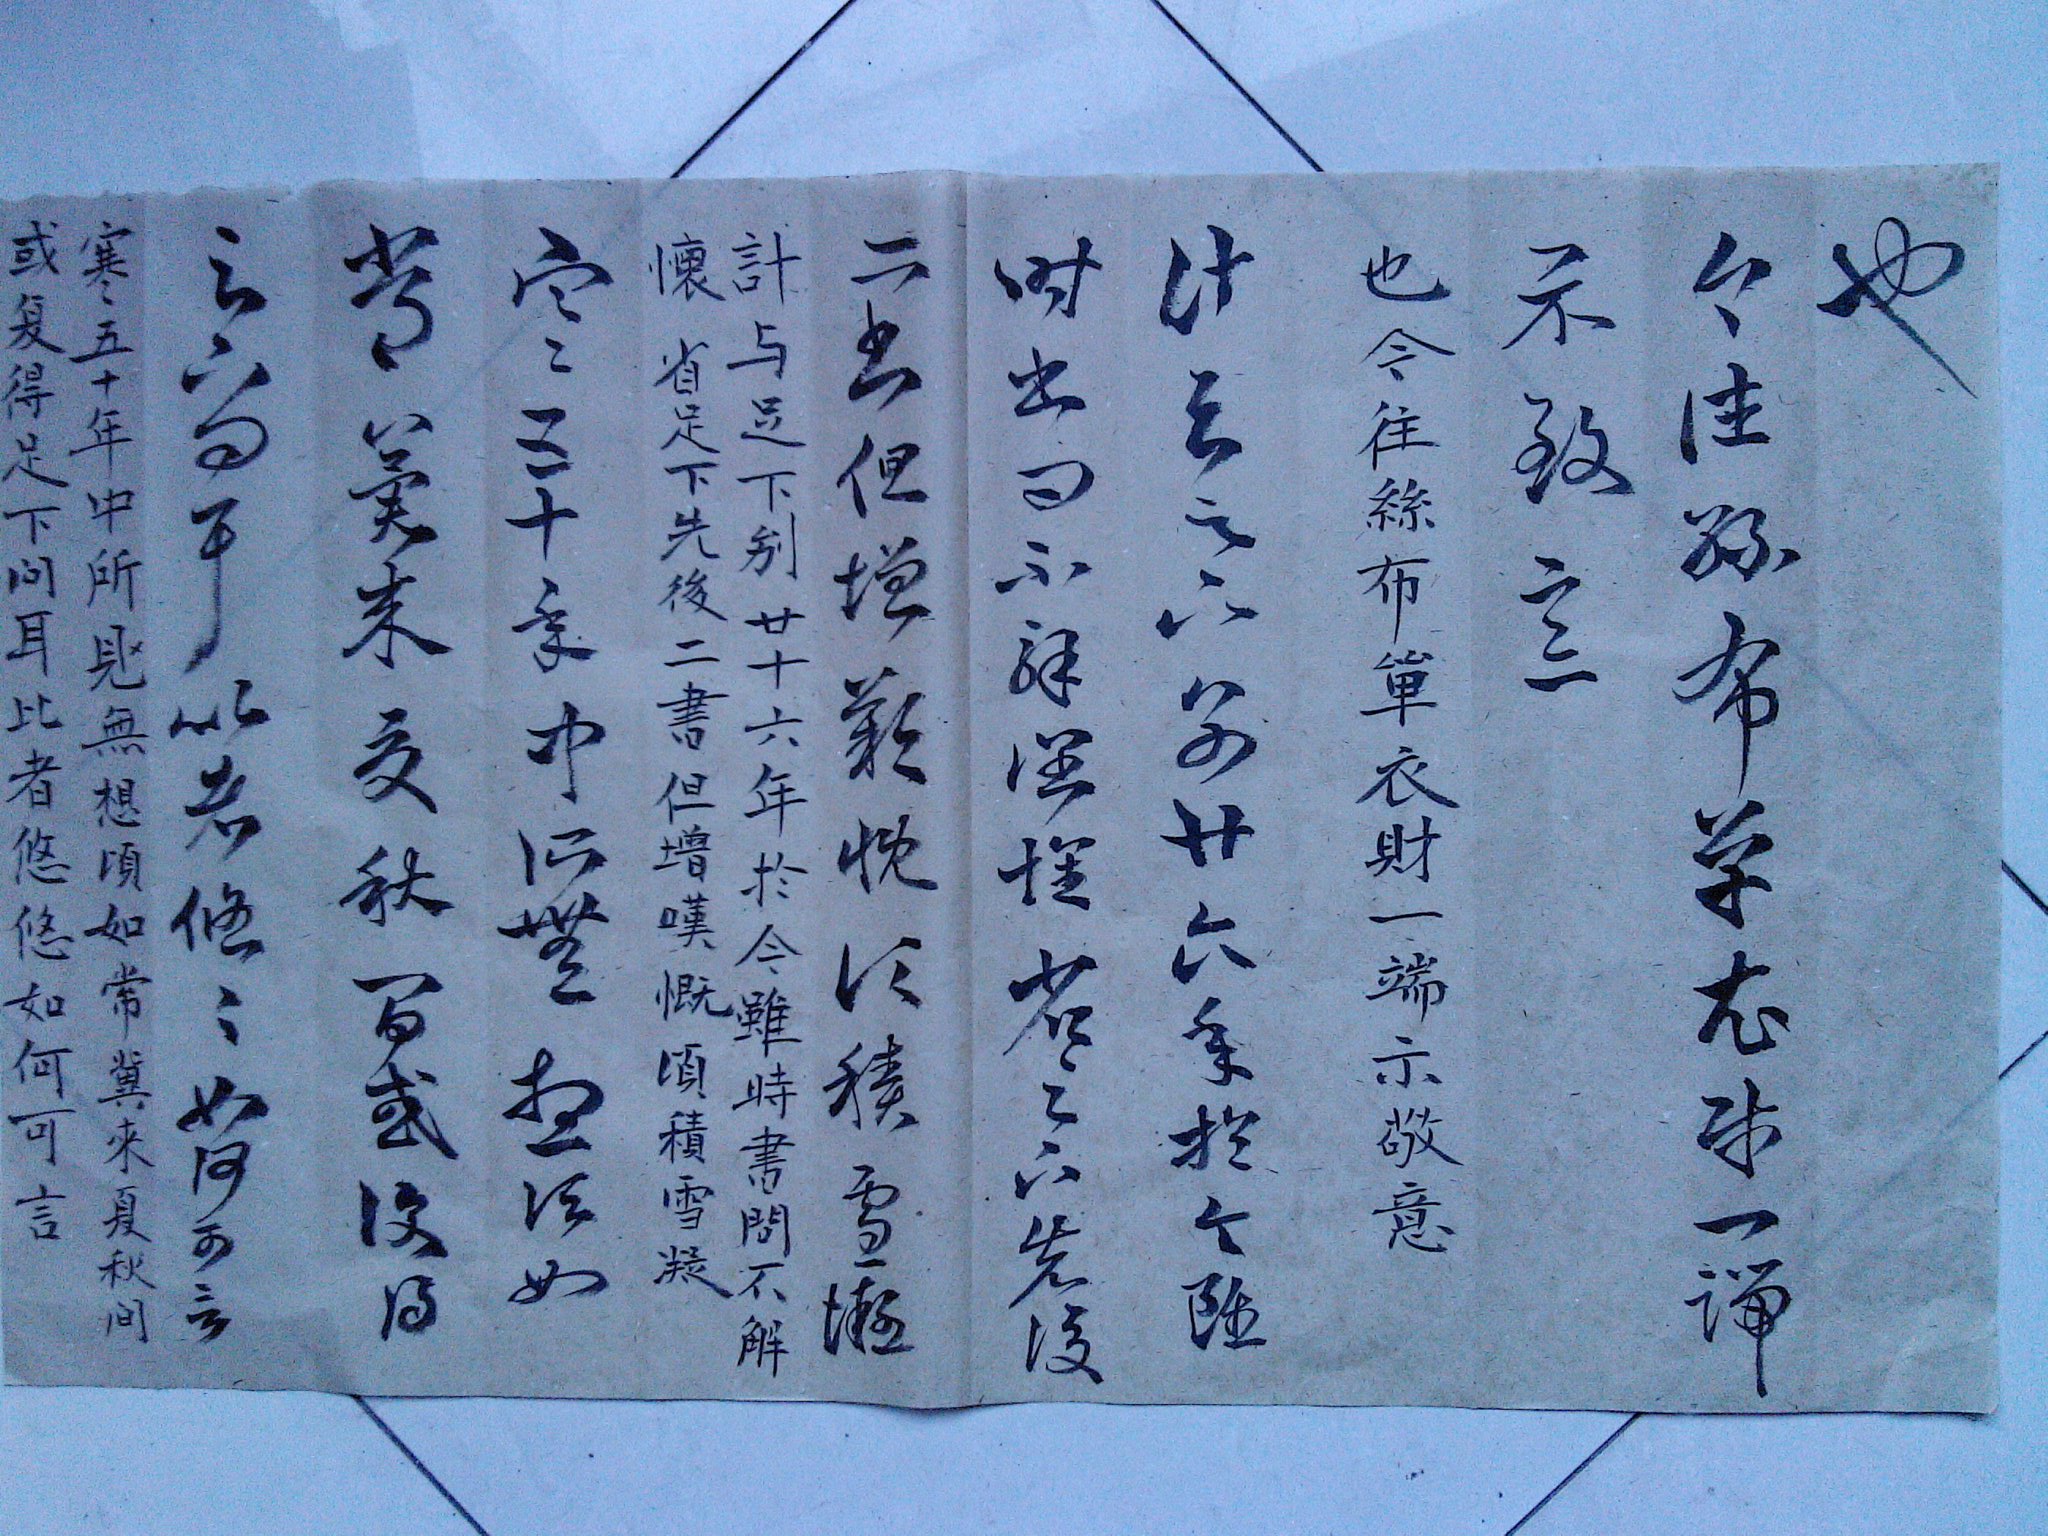 也
今往絲布單衣財一端
示致意
也今往絲布單衣財一端示敬意
計與足下別廿六年於今雖
時書問不解闊懷省足下先後
二書但增歎慨頃積雪凝
計与足下别廿十六年於今雖時書問不解
懷省足下先後二書但增嘆慨頃積雪凝
寒〻五十年中所無想頃如
常冀來夏秋間或復得
足下問耳比者悠〻如何可言
寒五十年中所見無想頃如常冀來夏秋间
或复得足下问耳比者悠悠如何可言